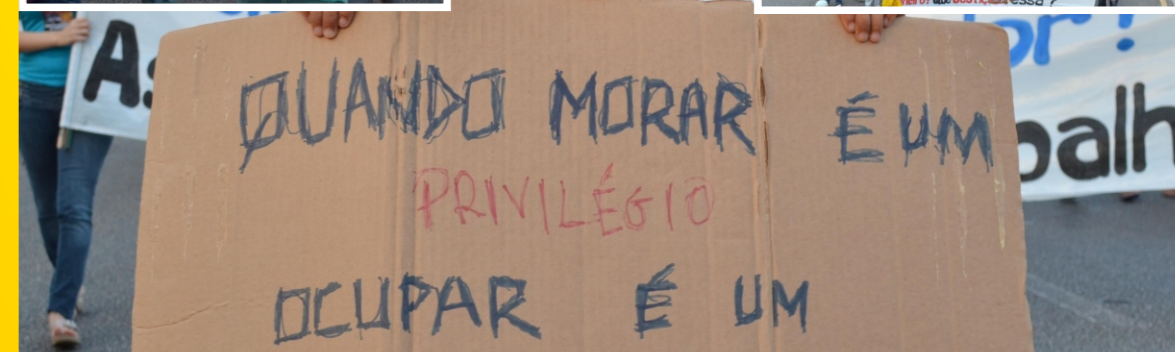 QUANDO MORAR É UM
PRIVILÉGIO
OCUPAR É UM
or!
balh